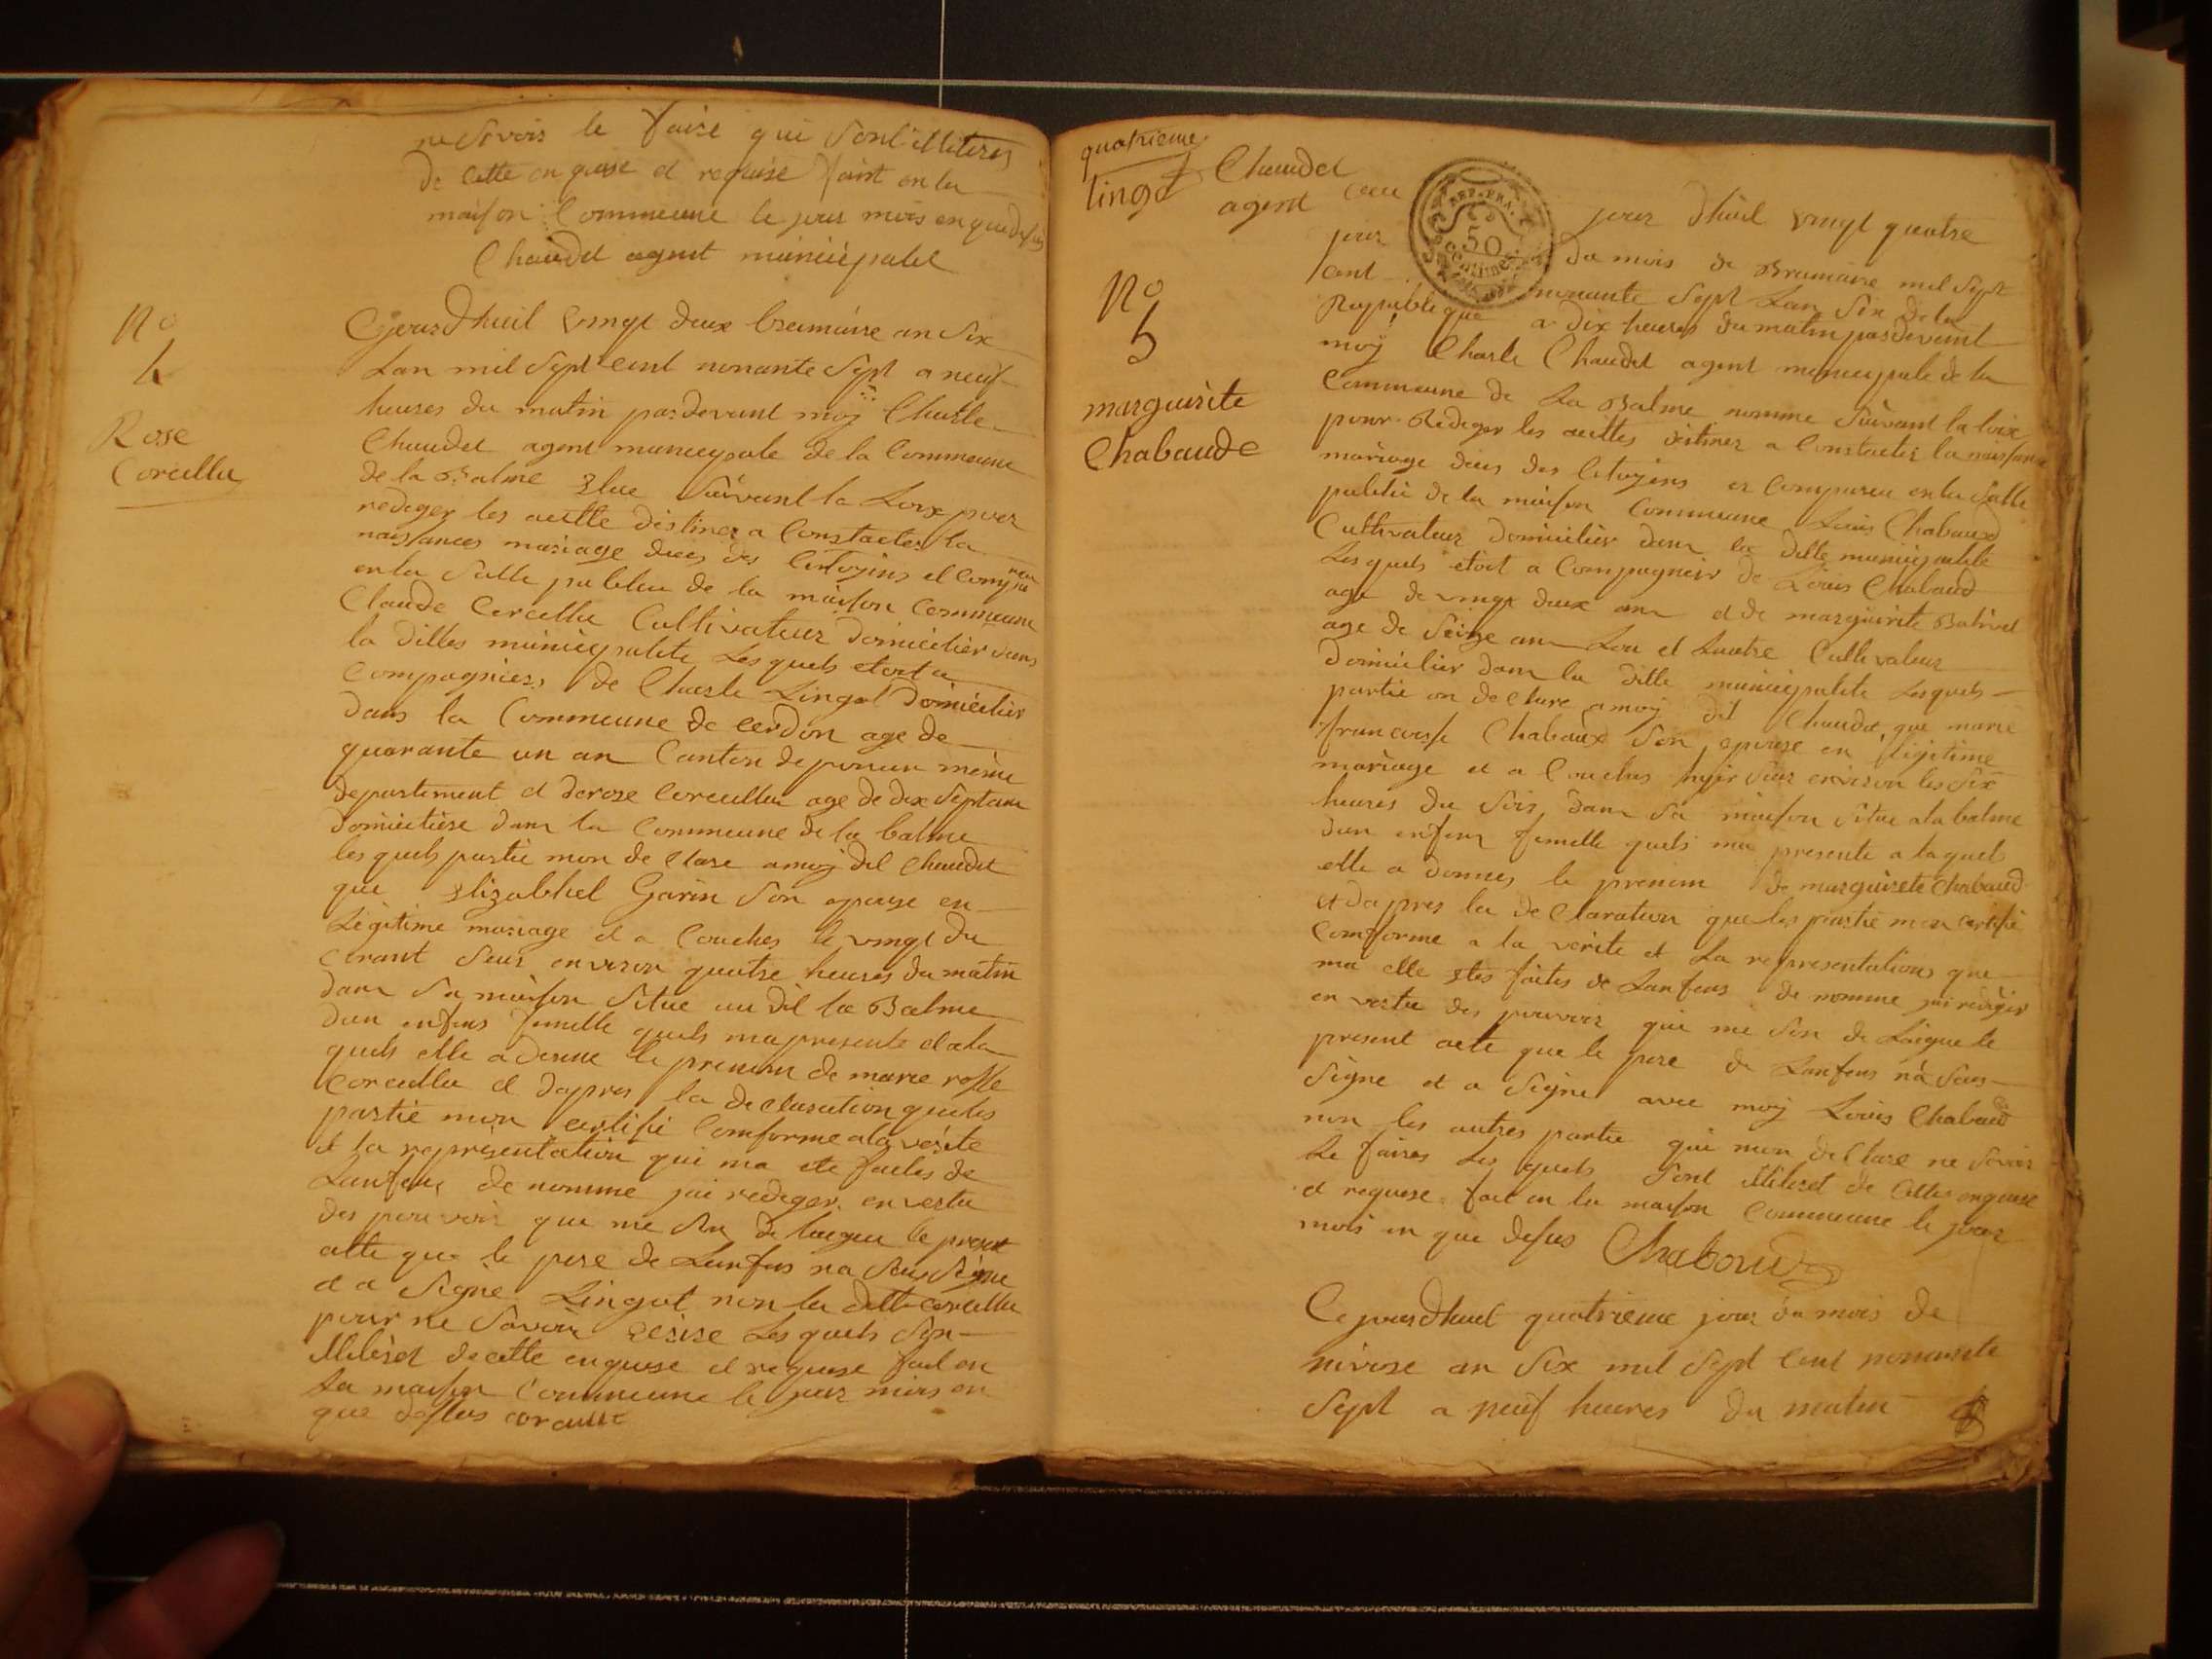 ne Savoir le faire qui Sont illiteres
de cette en quise et requise faint en la
maison Commeune le jour mois en que desus
Chaudet agent municipalle
No
4
Rose
Corcellu
Cejourdhuil vingt deux breumaire an Six
Lan mil Sept cent nonante Sept a neuf
heures du matin pardevant moy Charle
Chaudet agent municipale de la Commeune
de la Balme Elue Suivant la Loix pour
rediger les actte destinez a Constacter la
naissances mariage deces des Citoyins et Compareu
en la Salle publicu de la maison Commeune
Claude Corcellu Cultivateur domicilier dans
la dittes municipalite Lesquels etoit a
Compagnier, de Charle Lingot Domicilier
dans la Commeune de Cerdon age de
quarante un an Canton de poncin meme
departement et de rose Corcellu age de dix Sept an
domicilière dans la Commeune de la balme
les quels partie mon declare a moy dit Chaudet
que Elizabhet Garin Son epouse en
Légitime mariage et a Couches le vingt du
Corant Seur environ quatre heures du matin
dans Sa maison Situe au dit la Balme
dun enfens femelle quels ma presente et a la
quels elle a donne le prenom de marie rosse
Corcellu et dapres la declaration que les
partie mon certifie Comforme a la vérite
et la représentation qui ma ete faites de
Lenfens de nomme jai rediger en vertu
des pouvoir que me Son de legue le present
atte que le pere de Lenfens na Sous Signe
et a Signe Lingot non la ditte Corcellu
pour ne Savoir ecrire Les quels Son
illiteret de cette enquise et requise fait en
La maison Commeune le jour mois en
que dessus corcelle
quatrieme
lingot Chaudet
agent
No
5
marguirite
Chabaude
ceu jour dhuil vingt quatre
REP. FRA.
50
Centimes
jour du mois de Brumaire mil Sept
cent nonante Sept Lan Six de la
Republique a dix heures du matin pardevant
moy Charle Chaudet agent municipale de la
Commeune de La Balme nomme Suivant la loix
pour Rediger les acttes destinez a Constacter la naissance
mariage deces des Citoyins es Compareu en la Salle
publie de la maison Commeune Louis Chabaud
Cultivateur domicilier dans la ditte municipalite
Lesquels etoit a Compagnier de Louis Chabaud
age de vingt deux an et de marguirite Balivet
age de Seize an Lou et Lautre Cultivateur
domicilier dans la ditte municipalite Lesquels
partie on declare a moy dit Chaudet, que marie
francoisse Chabaud Son epouse en légitime
mariage et a Couches hyir Sur environ les Six
heures du Soir dans Sa maison Situe a la balme
dun enfens femelle quels ma presente a laquels
elle a donnes le prenom de marguirete Chabaud
et dapres la declaration que les partie mon certifie
Comforme a la vérite et la representations que
ma elle etes faites de Lanfens de nomme jai rediger
en vertu des pouvoir qui me Son de Leigue le
present acte que le pere de Lanfens na Sous
Signe et a Signe avec moy Louis Chabaud
non les autres partie qui mon declare ne Savoir
Le faires Les quels Sont illiteret de Cettes enquise
et requise fait en la maison Commeune le jour
mois en que desus Chaboud
Ce jourdhuil quatrieme jour du mois de
nivose an Six mil Sept Cent nonante
Sept a neuf heures du matin